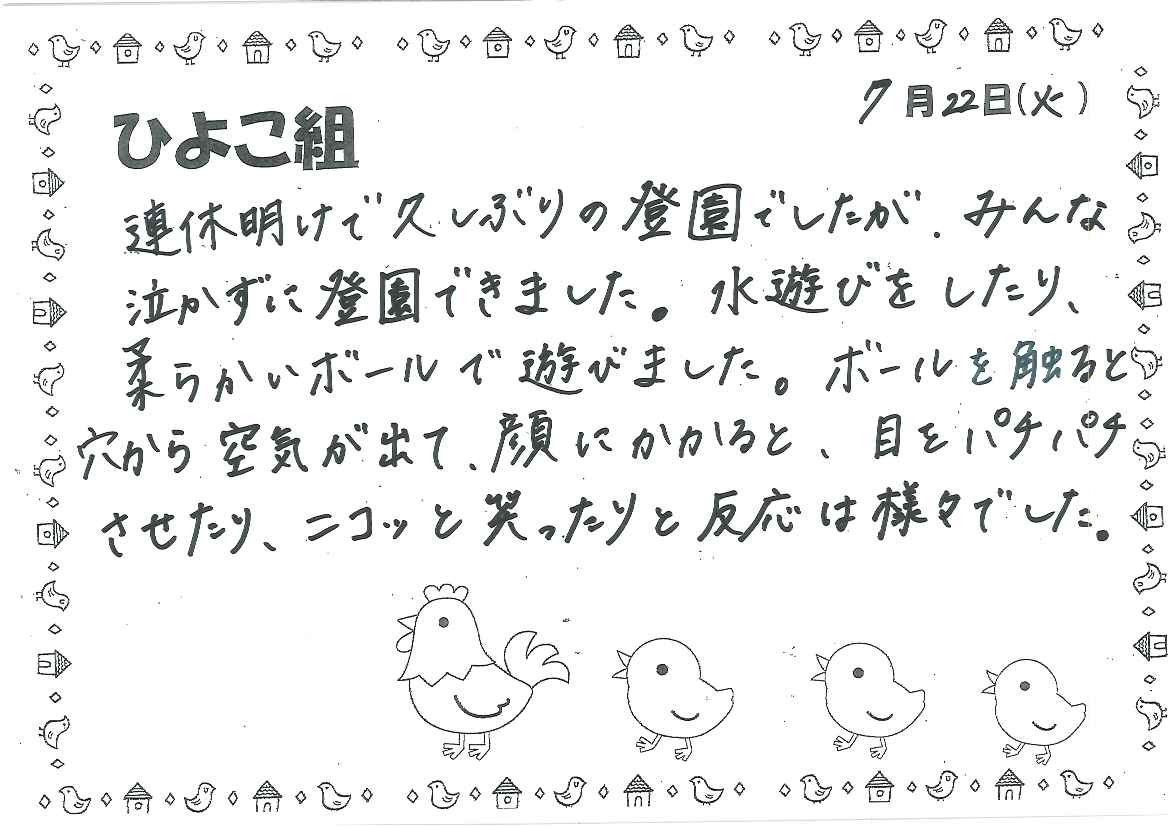 7月22日(火)
ひよこ組
連休明けで久しぶりの登園でしたが、みんな
泣かずに登園できました。水遊びをしたり、
柔らかいボールで遊びました。ボールを触ると
穴から空気が出て、顔にかかると、目をパチパチ
させたり、ニコッと笑ったりと反応は様々でした。